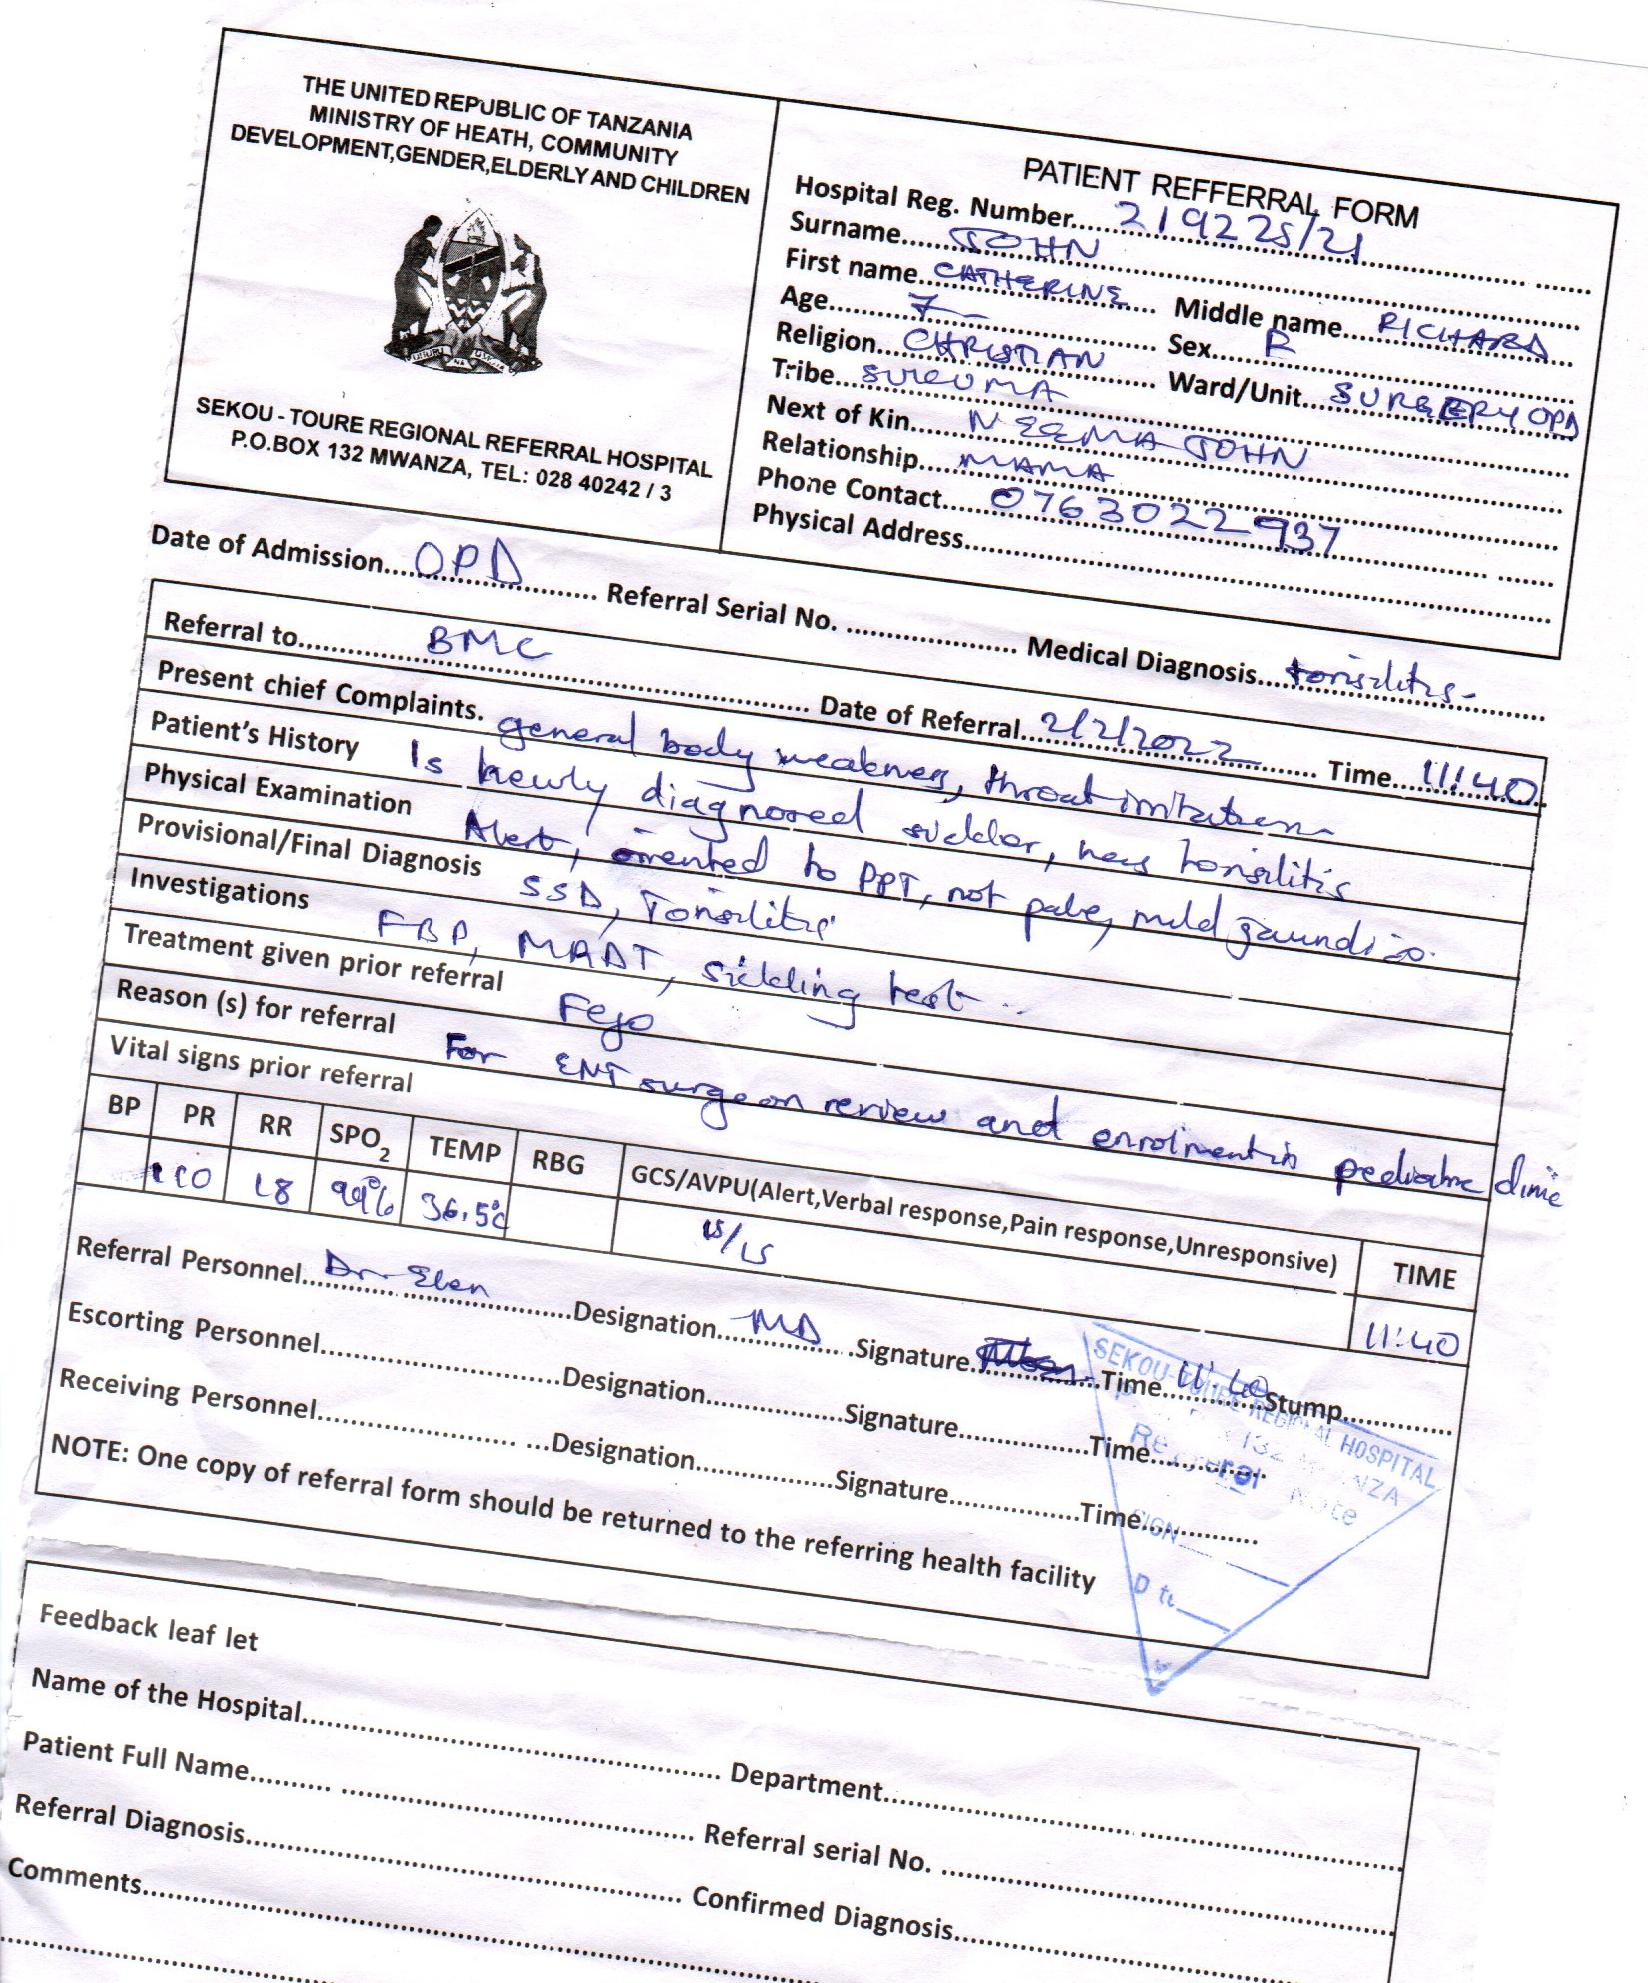 THE UNITED REPUBLIC OF TANZANIA
MINISTRY OF HEATH, COMMUNITY
DEVELOPMENT,GENDER,ELDERLY AND CHILDREN
UHURU NA UMOJA
SEKOU - TOURE REGIONAL REFERRAL HOSPITAL
P.O.BOX 132 MWANZA, TEL: 028 40242 / 3
PATIENT REFFERRAL FORM
Hospital Reg. Number....219225/21
Surname....JOHN
First name....CATHERINE.... Middle name....RICHARD
Age....7.... Sex....
Religion....CHRISTIAN.... Ward/Unit....SURGERY OPD
Tribe....SUKUMA
Next of Kin....NEEMA JOHN
Relationship....MAMA
Phone Contact....0763022937
Physical Address....
Date of Admission....OPD.... Referral Serial No. .... Medical Diagnosis....tonsilitis-
Referral to....BMC.... Date of Referral....2/2/2022.... Time....11:40
Present chief Complaints. general body weakness, throat irritation
Patient's History Is newly diagnosed sickler, has tonsilitis
Physical Examination Alert, oriented to PPT, not pale, mild jaundice.
Provisional/Final Diagnosis SSD, Tonsilitis
Investigations FBP, , sickling test..
Treatment given prior referral Fefo
Reason (s) for referral For ENT surgeon review and enrolment in pediatric clinic
Vital signs prior referral
BP PR RR SPO2 TEMP RBG GCS/AVPU(Alert,Verbal response,Pain response,Unresponsive) TIME
110 18 99% 36.5°c 15/15 11:40
Referral Personnel....Dr Eben....Designation....MD.....Signature....Time....11:40 Stump....
Escorting Personnel....Designation....Signature....Time....
Receiving Personnel....Designation....Signature....Time....
NOTE: One copy of referral form should be returned to the referring health facility
SEKOU-TOURE REGIONAL HOSPITAL
132 MWANZA
Referral Note
SIGN
Feedback leaf let
Name of the Hospital.... Department....
Patient Full Name.... Referral serial No. ....
Referral Diagnosis.... Confirmed Diagnosis....
Comments....